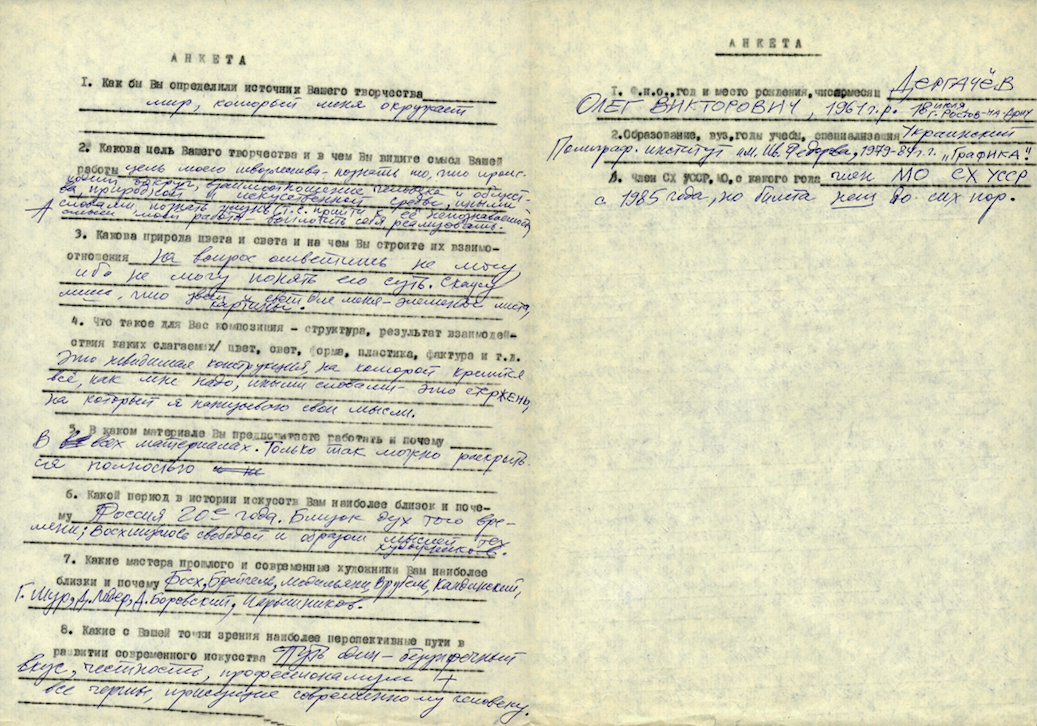 АНКЕТА
1. Как бы Вы определили источник Вашего творчества
мир, который меня окружает
2. Какова цель Вашего творчества и в чем Вы видите смысл Вашей
работы цель моего творчества - познать то, что проис-
ходит вокруг, взаимоотношение человека и общест-
ва природной и искусственной среды, иными
словами, познать жизнь, т.е. прийти к её непознаваемой
А смысл моей работы воплотить себя реализовать.
3. Какова природа цвета и света и на чем Вы строите их взаимо-
отношения На вопрос ответить не могу,
ибо не могу понять его суть. Скажу
лишь, что цвет и свет для меня - элементы листа,
картины.
4. Что такое для Вас композиция - структура, результат взаимодей-
ствия каких слагаемых/ цвет, свет, форма, пластика, фактура и т.д.
Это невидимая конструкция, на которой крепится
всё, как мне надо, иными словами - это СТЕРЖЕНЬ,
на который я нанизываю свои мысли.
5. В каком материале Вы предпочитаете работать и почему
В всех материалах. Только так можно раскрыть-
ся полностью
6. Какой период в истории искусств Вам наиболее близок и поче-
му Россия 20е года. Близок дух того вре-
мени; Восхищаюсь свободой и образом мыслей тех
художников.
7. Какие мастера прошлого и современные художники Вам наиболее
близки и почему Босх, Брейгель, Модильяни, Врубель, Кандинский,
Г. Мур, Д. Лидер, Д. Боровский,
8. Какие с Вашей точки зрения наиболее перспективные пути в
развитии современного искусства Путь один - безупречный
вкус, честность, профессионализм +
все черты, присущие современному человеку.
АНКЕТА
1. Ф.и.о., год и место рождения, число, месяц ДЕРГАЧЁВ
ОЛЕГ ВИКТОРОВИЧ, 1961 г.р. 18 июля
г. Ростов-на-Дону
2. Образование, вуз, годы учебы, специализация Украинский
Полиграф. институт им. Ив. Федорова, 1979-84 г.г. „Графика".
Член СХ УССР, МО, с какого года член МО СХ УССР
с 1985 года, но билета нет до сих пор.